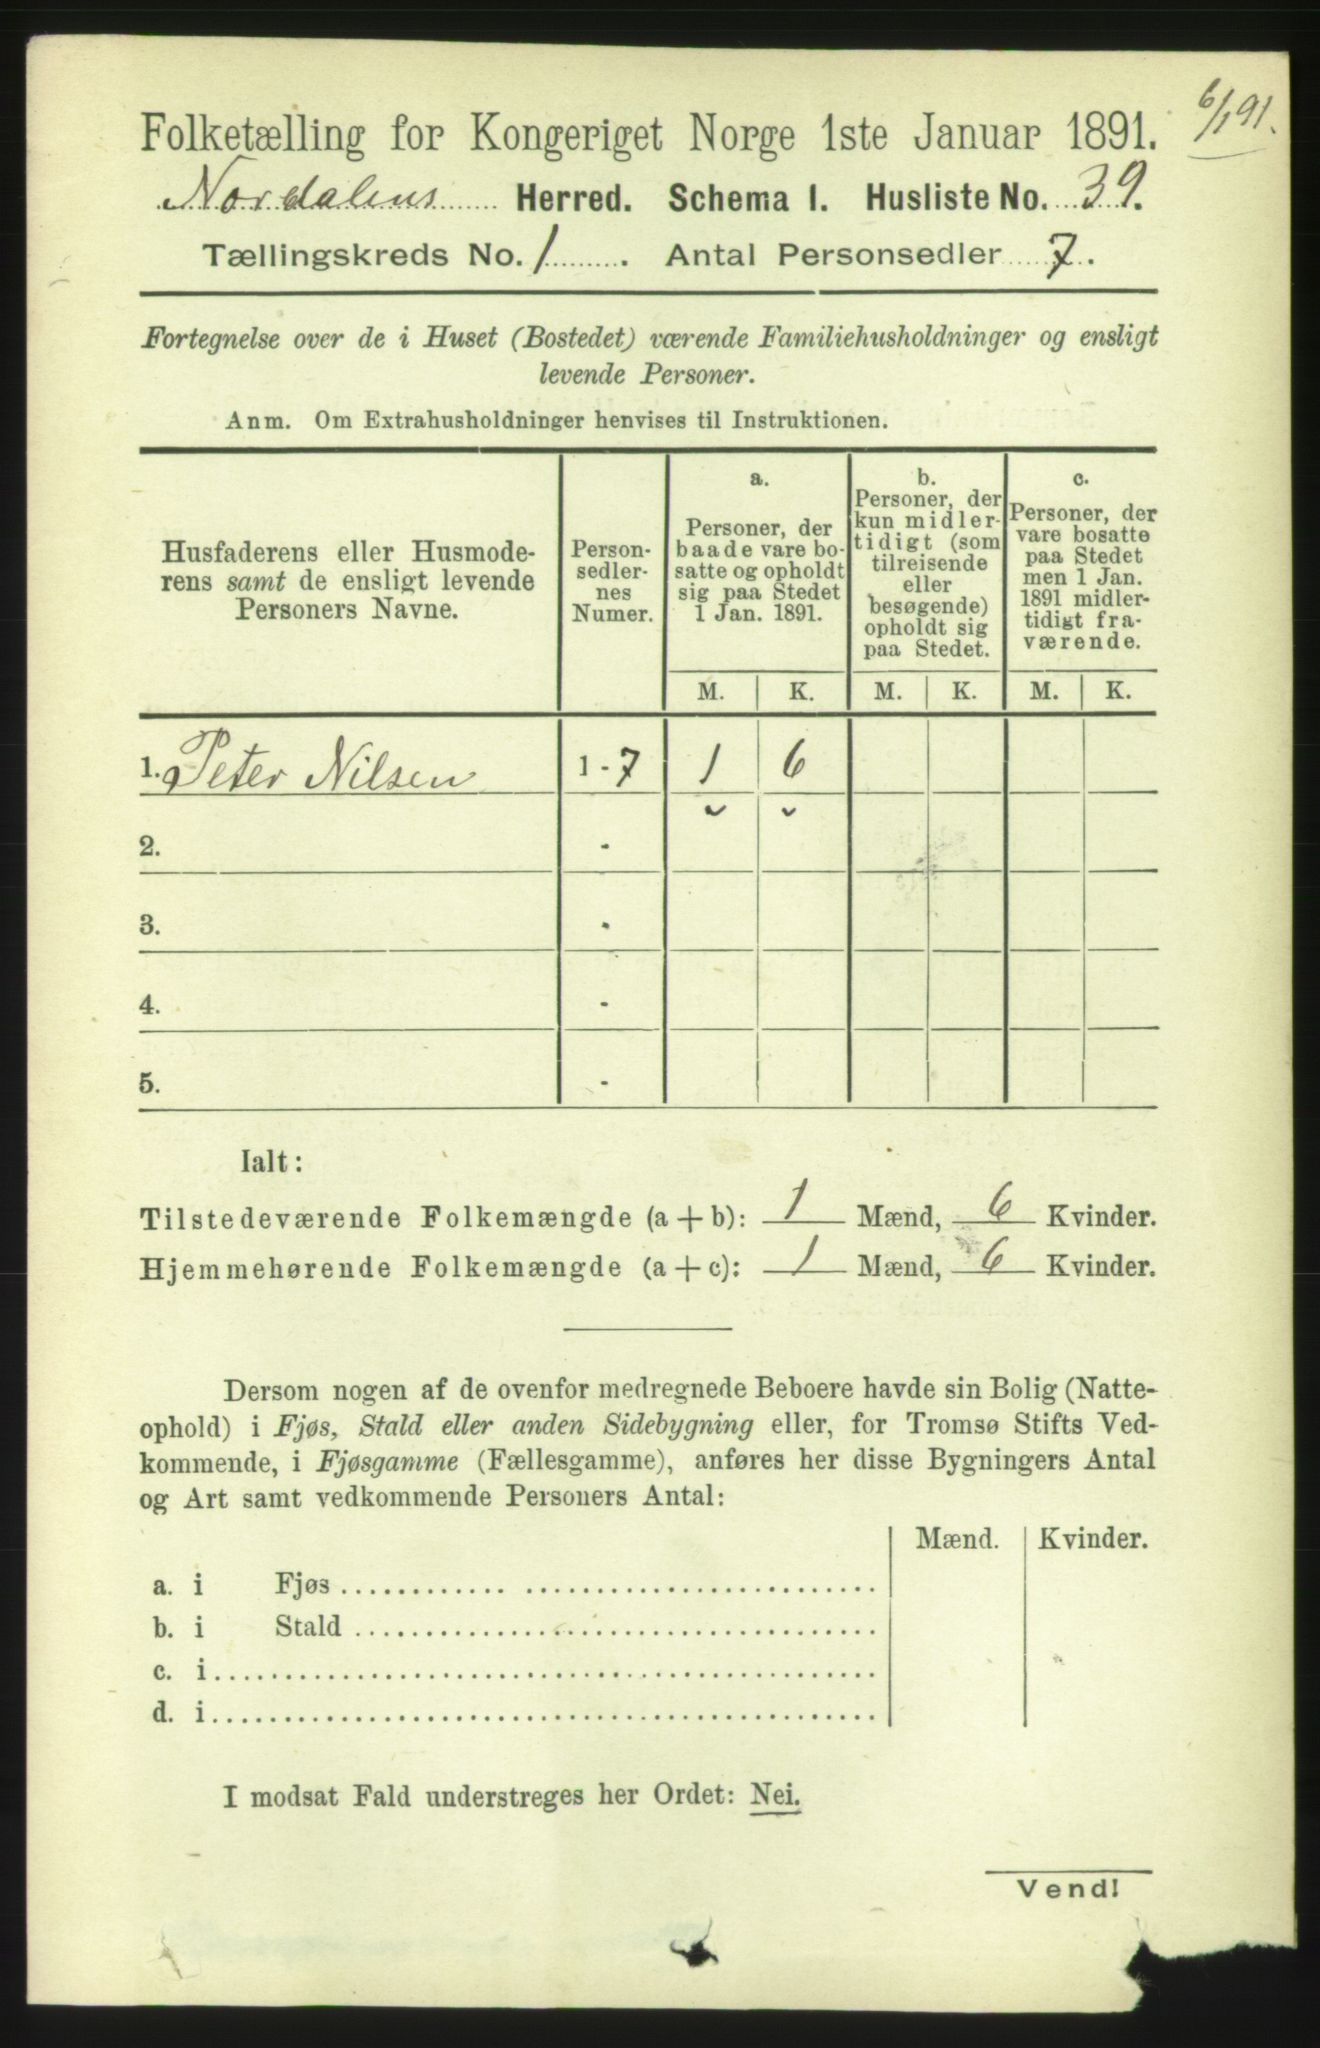 6/1 91.
Folketælling for Kongeriget Norge 1ste Januar 1891.
Nordalens Herred. Schema 1. Husliste No. 39.
Tællingskreds No. 1. Antal Personsedler 7.
Fortegnelse over de i Huset (Bostedet) værende Familiehusholdninger og ensligt
levende Personer.
Anm. Om Extrahusholdninger henvises til Instruktionen.
Husfaderens eller Husmode-
rens samt de ensligt levende
Personers Navne.
Person-
sedler-
nes
Numer.
a.
Personer, der
baade vare bo-
satte og opholdt
sig paa Stedet
1 Jan. 1891.
b.
Personer, der
kun midler-
tidigt (som
tilreisende
eller
besøgende)
opholdt sig
paa Stedet.
c.
Personer, der
vare bosatte
paa Stedet
men 1 Jan.
1891 midler-
tidigt fra-
værende.
M. K. M. K. M. K.
1. Peter Nilsen 1 - 7 1 6
2. -
3. -
4. -
5. -
Ialt:
Tilstedeværende Folkemængde (a + b): 1 Mænd, 6 Kvinder.
Hjemmehørende Folkemængde (a + c): 1 Mænd, 6 Kvinder.
Dersom nogen af de ovenfor medregnede Beboere havde sin Bolig (Natte-
ophold) i Fjøs, Stald eller anden Sidebygning eller, for Tromsø Stifts Ved-
kommende, i Fjøsgamme (Fællesgamme), anføres her disse Bygningers Antal
og Art samt vedkommende Personers Antal:
Mænd. Kvinder.
a. i Fjøs
b. i Stald
c. i
d. i
I modsat Fald understreges her Ordet: Nei.
Vend!